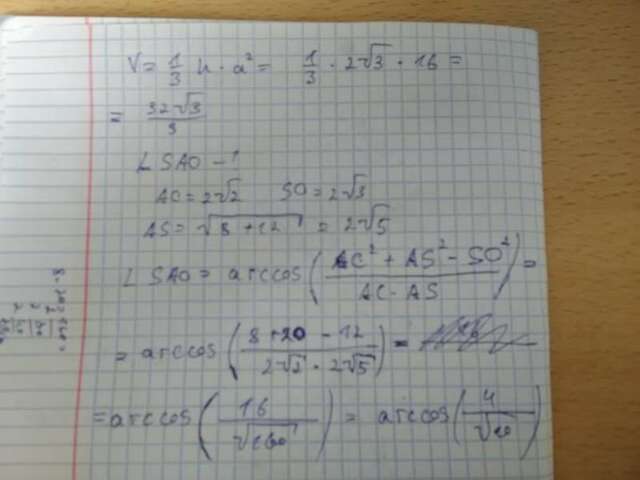 V = 1/3 h · a² = 1/3 · 2√3 · 16 =
= 32√3/3
∠ SAO - ?
AO = 2√2 SO = 2√3
AS = √(8+12) = 2√5
∠ SAO = arccos( (AC² + AS² - SO²)/(AC · AS) ) =
= arccos( (8 + 20 - 12)/(2√2 · 2√5) ) =
= arccos( 16/√160 ) = arccos( 4/√10 )